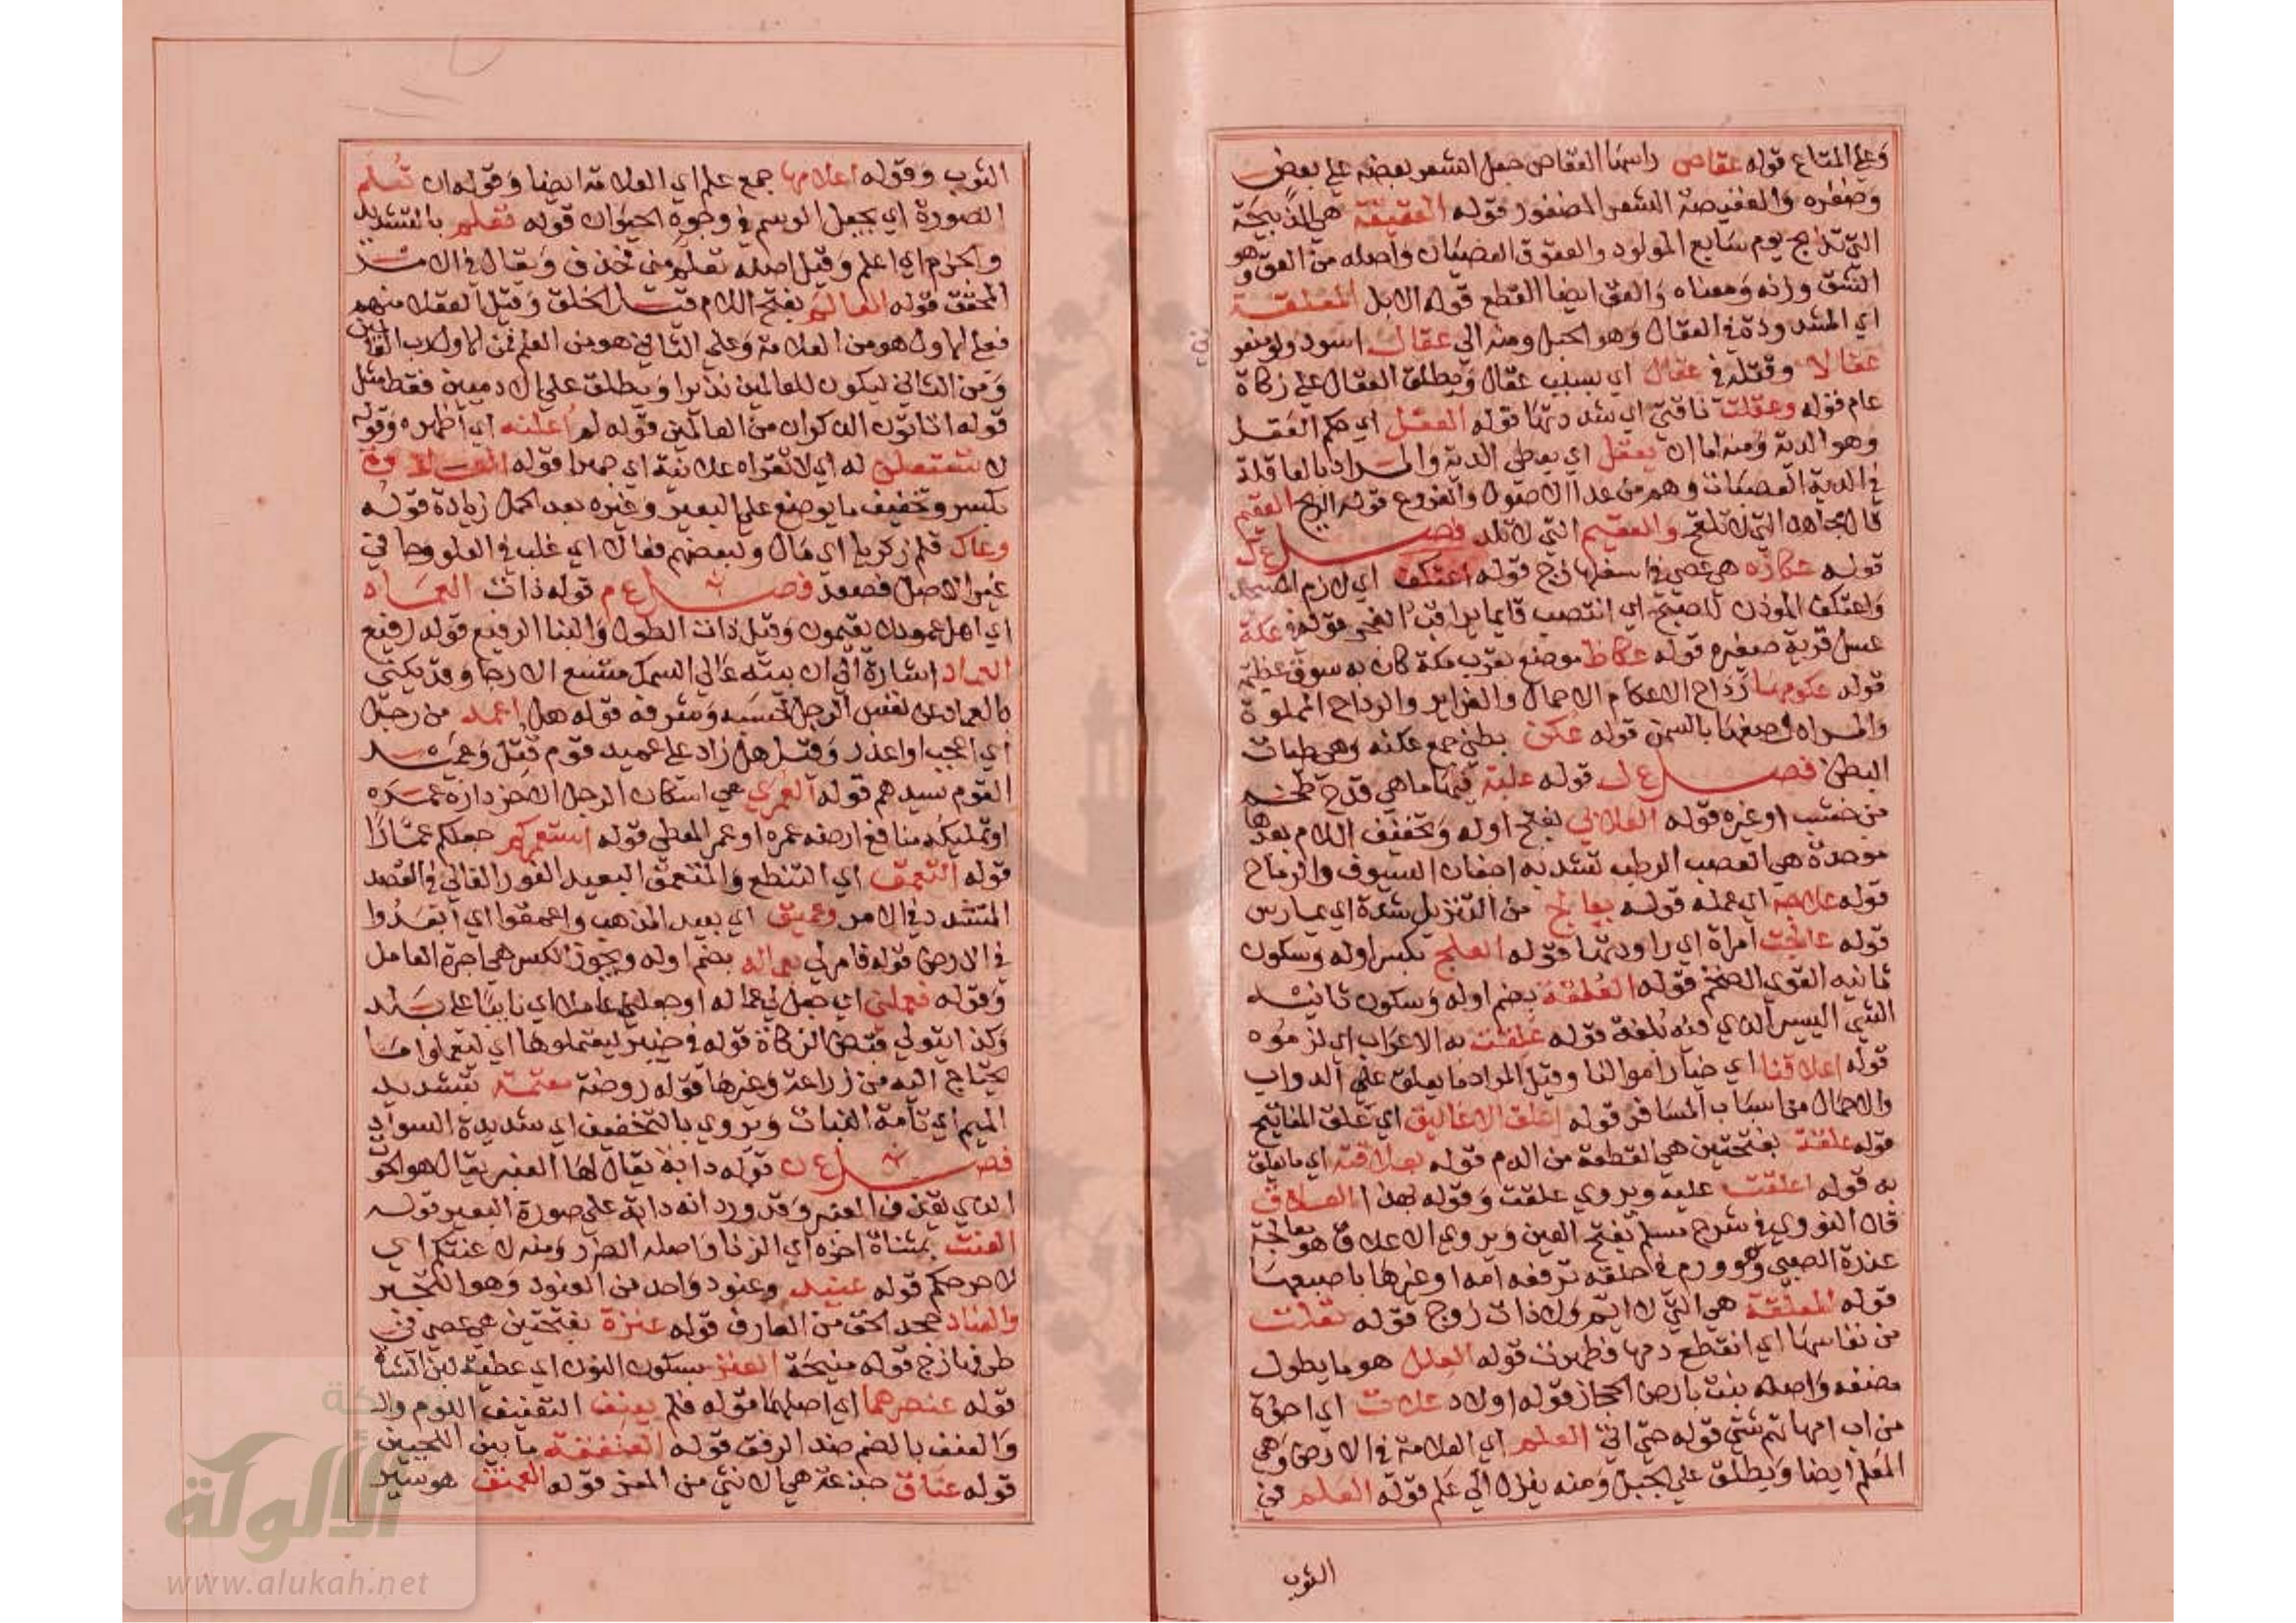 وعلى المتاع قوله عقاص راسها العقاص جعل الشعر بعضه على بعض
وضفره والعقيصة الشعر المضفور قوله العقيقة هي الذبيحة
التي تذبح يوم سابع المولود والعقوق العصيان واصله من العق وهو
الشق وزنه ومعناه والعق ايضا القطع قوله الابل المعقلة
اي المشدودة في العقال وهو الحبل ومنه الى عقال اسود ولو منعو
عقالا وقتله في عقال اي بسبب عقال ويطلق العقال على زكاة
عام قوله وعقلت ناقتي اي شددتها قوله العقل اي حكم العقل
وهو الدية ومنه اما ان يعقل اي يعطى الدية والمراد بالعاقلة
في الدية العصبات وهم من عدا الاصول والفروع قوله الريح العقيم
قال مجاهد التي لا تلقح والعقيم التي لا تلد فصل ع ك
قوله عكازه هي عصى في اسفلها زج قوله اعتكف اي لازم المسجد
واعتكف الموذن للصبح اي انتصب قايما يراقب الفجر قوله في عكة
عسل قربة صغيره قوله عكاظ موضع بقرب مكة كان به سوق عظيم
قوله عكومها رداح الاعكام الاحمال والغراير والرداح المملوة
والمراه وصفها بالسمن قوله عكن بطني جمع عكنه وهي طيات
البطن فصل ع ل قوله علبة فيها ما هي قدح ضخمه
من خشب او غيره قوله العلابي بفتح اوله وتخفيف اللام بعدها
موحدة هي العصب الرطب تشد به اجفان السيوف والرماح
قوله علاجه اي عمله قوله يعالج من التنزيل شدة اي يمارس
قوله عالجت امراة اي راودتها قوله العلج بكسر اوله وسكون
ثانيه القوي الضخم قوله العلقة بضم اوله وسكون ثانيه
الشي اليسير الذي فيه بلغة قوله علقت به الاعراب اي لزموه
قوله اعلاقنا اي خيار اموالنا وقيل المراد ما يعلق على الدواب
والاحمال من اسباب المسافر قوله اعلق الاغاليق اي علق المفاتيح
قوله علقة بفتحتين هي القطعة من الدم قوله بعلاقته اي ما يعلق
به قوله اعلقت عليه ويروي علقت وقوله بهذا العلاق
قال النووي في شرح مسلم بفتح العين ويروي الاعلاق هو معالجة
عذرة الصبي وهو ورم في حلقه ترفعه امه او غيرها باصبعها
قوله المعلقة هي التي لا ايم ولا ذات زوج قوله تعلت
من نفاسها اي انقطع دمها فطهرت قوله العلل هو ما يطول
من اب امهاتهم شتى قوله حتى اتى العلم اي العلامة في الارض وهي
المعلم ايضا ويطلق على الجبل ومنه ينزل الى علم قوله العلم في
الثوب
الثوب وقوله اعلامها جمع علم اي العلامة ايضا وقوله ان تعلم
الصورة اي يجعل الوسم في وجوه الحيوان قوله تعلم بالتشديد
والجزم اي اعلم وقيل اصله تعلم مني فحذف ويقال في الامر
المحقق قوله العالم بفتح اللام قيل الخلق وقيل العقلا منهم
فعلى الاول هو من العلامة وعلى الثاني هو من العلم فمن الاول رب العالمين
ومن الثاني ليكون للعالمين نذيرا ويطلق على الادميين فقط مثل
قوله اتاتون الذكران من العالمين قوله لم اعلنه اي اظهره وقوله
لا تستعلن له اي لا تقراه علانية اي جهرا قوله العلاوة
بكسر وتخفيف ما يوضع على البعير وغيره بعد الحمل زيادة قوله
وعال قلم زكريا اي مال ولبعضهم فعال اي غلب في العلو وجا في
غير الاصل فصعد فصل ع م قوله ذات العماد
اي اهل عمود لا يقيمون وقيل ذات الطول والبنا الرفيع قوله رفيع
العماد اشارة الى ان بيته عالي السمك متسع الارجا وقد يكني
بالعماد عن نفس الرجل لحسبه وشرفه قوله هل اعمد من رجل
اي اعجب او اعذر وقيل هل زاد على عميد قوم قتل وعميد
القوم سيدهم قوله العمرى هي اسكان الرجل الاخر داره عمره
او تمليكه منافع ارضه عمره او عمر المعطي قوله استعمركم جعلكم عمارا
قوله التعمق اي التنطع والمتعمق البعيد الغور الغالي في القصد
المتشدد في الامر وعميق اي بعيد المذهب واعمقوا اي ابعدوا
في الارض قوله فامر لي بعماله بضم اوله ويجوز الكسر هي اجرة العامل
وقوله فعملني اي جعل لي عماله او جعلني عاملا اي نايبا على بلد
وكذا يتولي قبض الزكاة قوله في خيبر ليعتملوها اي ليعملوا ما
يحتاج اليه من زراعة وغيرها قوله روضة معتمة بتشديد
الميم اي تامة النبات ويروي بالتخفيف اي شديدة السواد
فصل ع ن قوله دابة يقال لها العنبر يقال هو الحوت
الذي يقذف العنبر وقد ورد انه دابة على صورة البعير قوله
العنت بمثناة اخره اي الزنا واصله الضرر ومنه لاعنتكم اي
لاحرجكم قوله عنيد وعنود واحد من العنود وهو التجبر
والعناد جحد الحق من العارف قوله عنزة بفتحتين هي عصي في
طرفها زج قوله منيحة العنز بسكون النون اي عطية لبن الشاة
قوله عنصرهما اي اصلهما قوله فلم يعنف التعنيف اللوم
والعنف بالضم ضد الرفق قوله العنفقة ما بين اللحيين
قوله عناق جذعة هي الانثى من المعز قوله العنق هو سير
شبكة
الألوكة
www.alukah.net